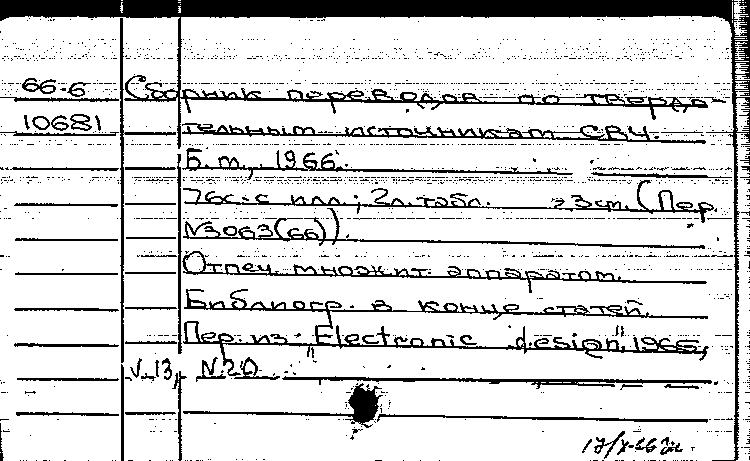 66-6 Сборник переводов по твердо-
10681 тельным источникам СВЧ.
Б.м., 1966.
76с. с илл.; 2л. табл. 23см. (Пер.
N3063(66)).
Отпеч. множит. аппаратом.
Библиогр. в конце статей.
Пер. из: "Electronic design", 1965,
v. 13, N.20
17/X-66